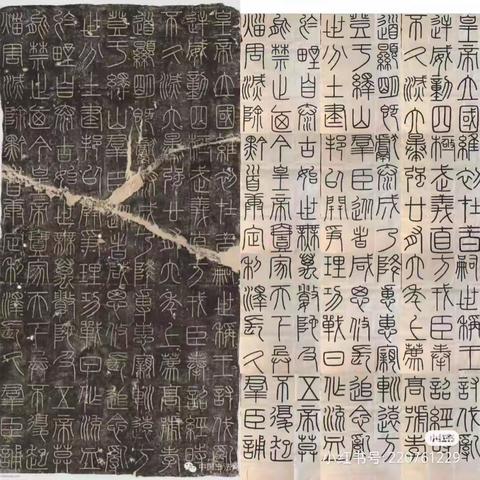 皇帝立國維初在昔嗣世稱王討伐亂
逆威動四極武義直方戎臣奉詔經時
不久滅六暴強廿有六年上薦高號孝
道顯明既獻泰成乃降專惠親巡遠方
登于繹山群臣從者咸思攸長追念亂
世分土建邦以開爭理功戰日作流血
於野自泰古始世無萬數陀及五帝莫
能禁止廼今皇帝壹家天下兵不復起
災害滅除黔首康定利澤長久群臣誦
皇帝立國維初在昔嗣世稱王討伐亂
逆威動四極武義直方戎臣奉詔經時
不久滅六暴強廿有六年上薦高號孝
道顯明既獻泰成乃降專惠親巡遠方
登于繹山群臣從者咸思攸長追念亂
世分土建邦以開爭理功戰日作流血
於野自泰古始世無萬數陀及五帝莫
能禁止廼今皇帝壹家天下兵不復起
災害滅除黔首康定利澤長久群臣誦
小红书
小红书号: 220761229